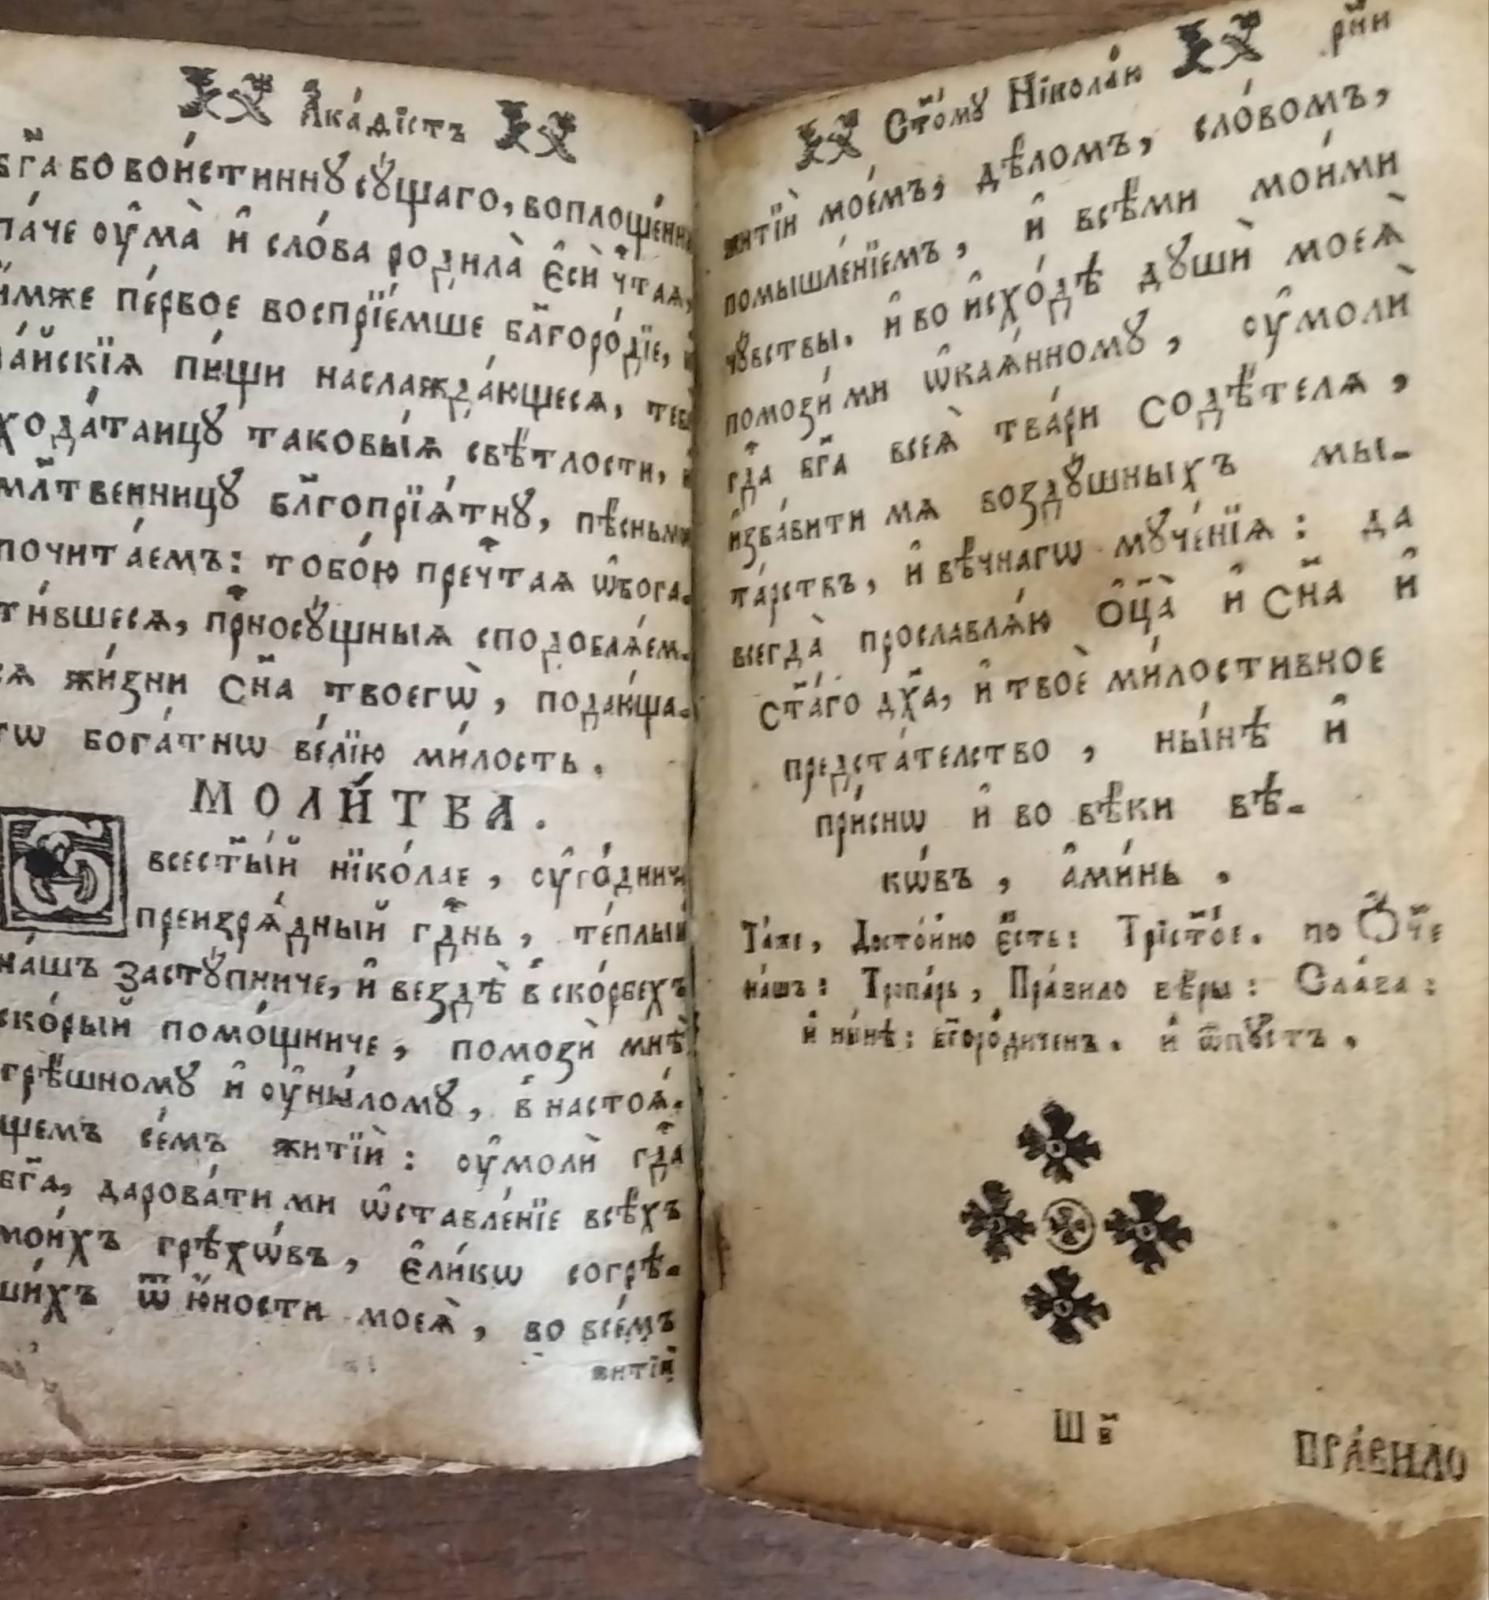 А҆ка́ѳїстъ
бг҃а бо вои́стиннꙋ сꙋ́щаго, воплоще́нна
па́че ᲂу҆ма̀ и҆ сло́ва родила̀ є҆сѝ чⷭ҇тая,
и́мже пе́рвое воспрїе́мше бл҃горо́дїе, и҆
ра́йскїѧ пи́щи наслажда́ющесѧ, тебѐ
хода́таицꙋ таковы́ѧ свѣ́тлости, и҆
мл҃твенницꙋ бл҃гопрїѧ́тнꙋ, пѣсньми
почита́емъ: тобо́ю пречⷭ҇таѧ ѡ҆бога-
ти́вшесѧ, прⷭ҇носꙋ́щныѧ сподоблѧ́ем-
сѧ жи́зни сн҃а твоегѡ̀, пода́юща-
гѡ бога́тнѡ ве́лїю ми́лость.
МОЛИ́ТВА.
Ѽ всест҃ы́й нїко́лае, ᲂу҆го́дниче
преизрѧ́дный гдⷭ҇нь, те́плый
на́шъ застꙋ́пниче, и҆ вездѣ̀ в̾ ско́рбехъ
ско́рый помо́щниче, помозѝ мнѣ̀
грѣ́шномꙋ и҆ ᲂу҆ны́ломꙋ, в̾ настоѧ́-
щемъ се́мъ житїѝ: ᲂу҆молѝ гдⷭ҇а
бг҃а, дарова́ти ми ѡ҆ставле́нїе всѣ́хъ
мои́хъ грѣхѡ́въ, є҆ли́кѡ согрѣ-
ши́хъ ѿ ю҆́ности моеѧ̀, во все́мъ
житїѝ
Ст҃о́мꙋ Нїкола́ю рн҃и
житїѝ мое́мъ, дѣ́ломъ, сло́вомъ,
помышле́нїемъ, и҆ всѣ́ми мои́ми
чꙋ́вствы. и҆ во и҆схо́дѣ дꙋшѝ моеѧ̀
помози́ ми ѡ҆каѧ́нномꙋ, ᲂу҆молѝ
гдⷭ҇а бг҃а всеѧ̀ тва́ри Содѣ́телѧ,
и҆зба́вити мѧ воздꙋ́шныхъ мы-
та́рствъ, и҆ вѣ́чнагѡ мꙋче́нїѧ: да
всегда̀ прославлѧ́ю Ѻ҆ц҃а̀ и҆ Сн҃а и҆
ст҃а́го дх҃а, и҆ твоѐ ми́лостивное
предста́телство, ны́нѣ и҆
при́снѡ и҆ во вѣ́ки вѣ-
кѡ́въ, а҆ми́нь.
Та́же, Досто́йно є҆́сть: Трїст҃о́е. по Ѻ҆́ч҃е
на́шъ: Тропа́рь, Пра́вило вѣ́ры: Сла́ва:
и҆ ны́нѣ: бг҃оро́диченъ. и҆ ѿпꙋ́стъ.
Ш в҃
ПРА́ВИЛО